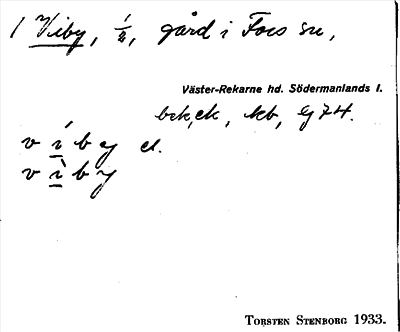 1 Viby, 1/2, gård i Fors sn,
Väster-Rekarne hd. Södermanlands l.
kb,
v í b y el.
v ì b y
TORSTEN STENBORG 1933.